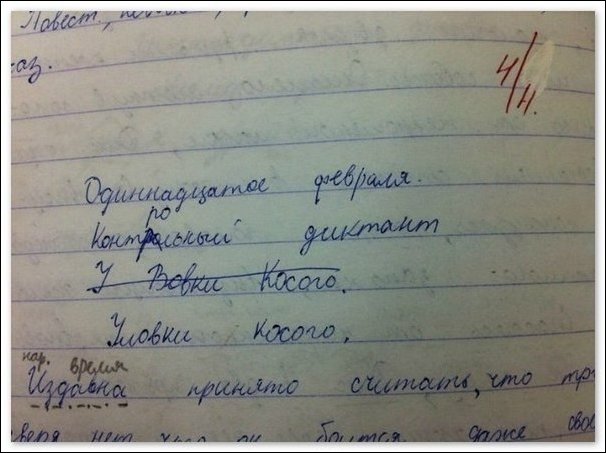 Повест.,
аз.
4/4.
Одиннадцатое февраля.
Контрольный диктант
У Вовки Косого.
Уловки косого.
нар. время
Издавна принято считать, что
зверя нет, боится даже